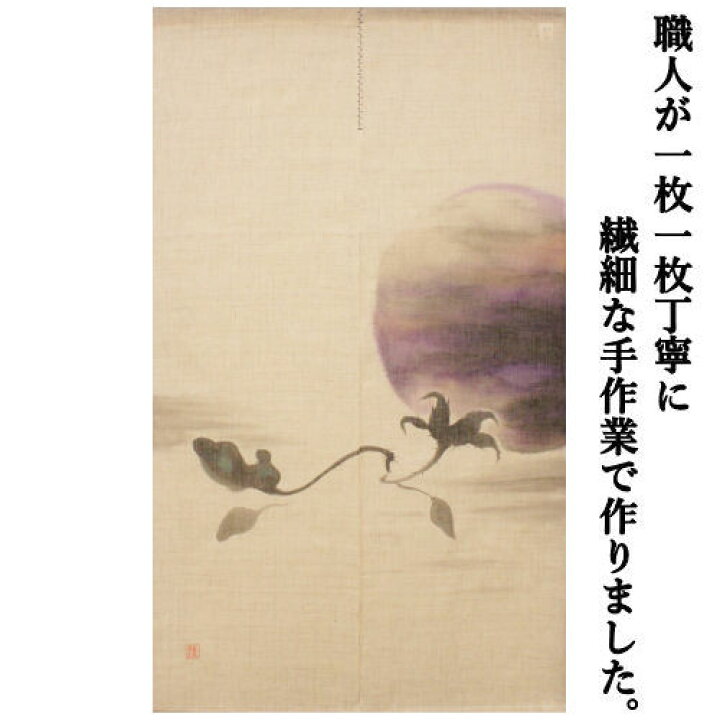 職人が一枚一枚丁寧に
繊細な手作業で作りました。